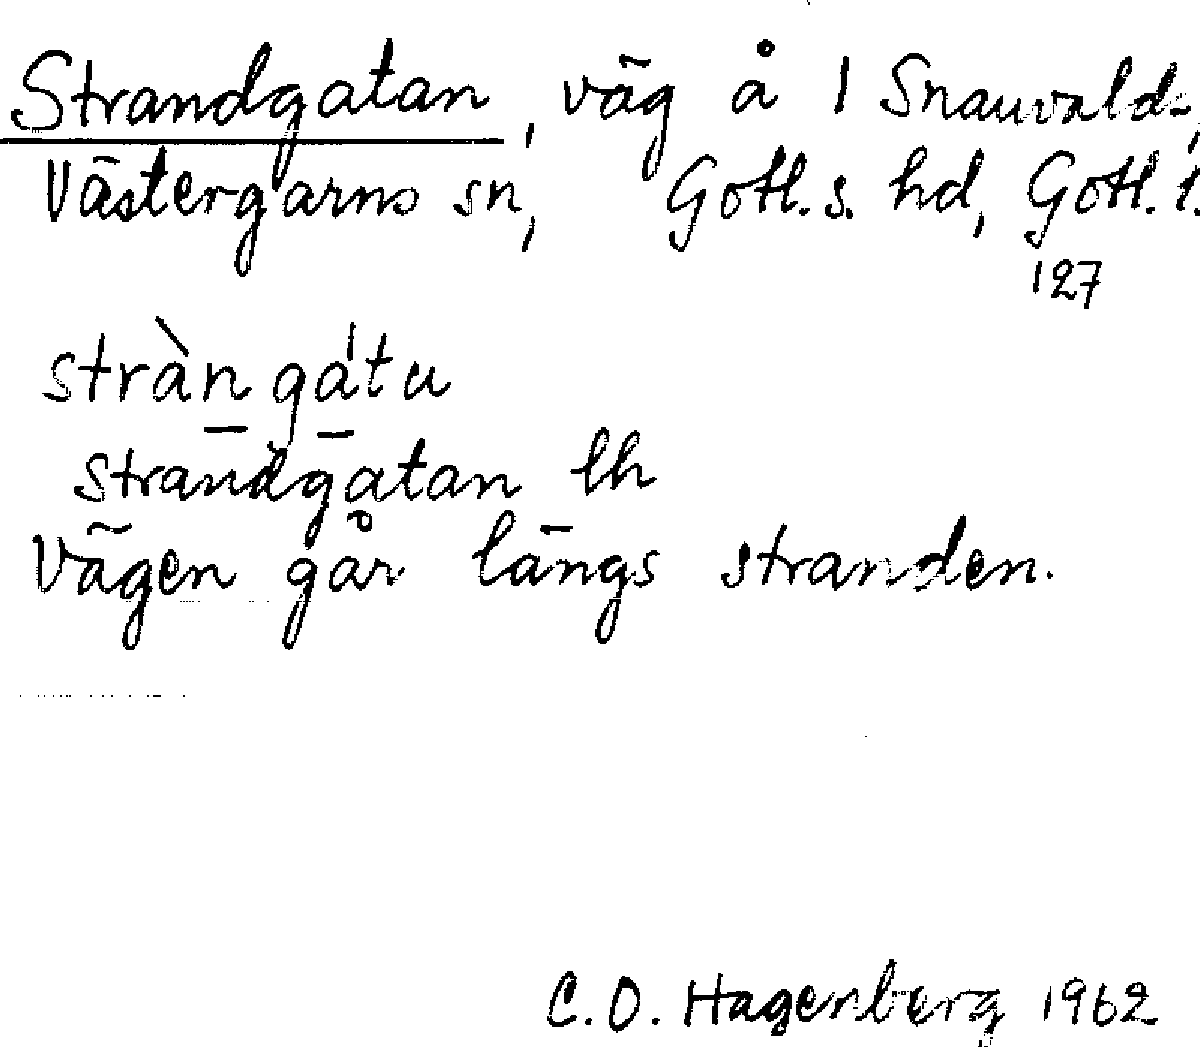 Strandgatan, väg å 1 Snauvalds,
Västergarns sn, Gotl. s. hd, Gotl. l.
127
stràn gátu
strandgatan lh
Vägen går längs stranden.
C. O. Hagenberg 1962